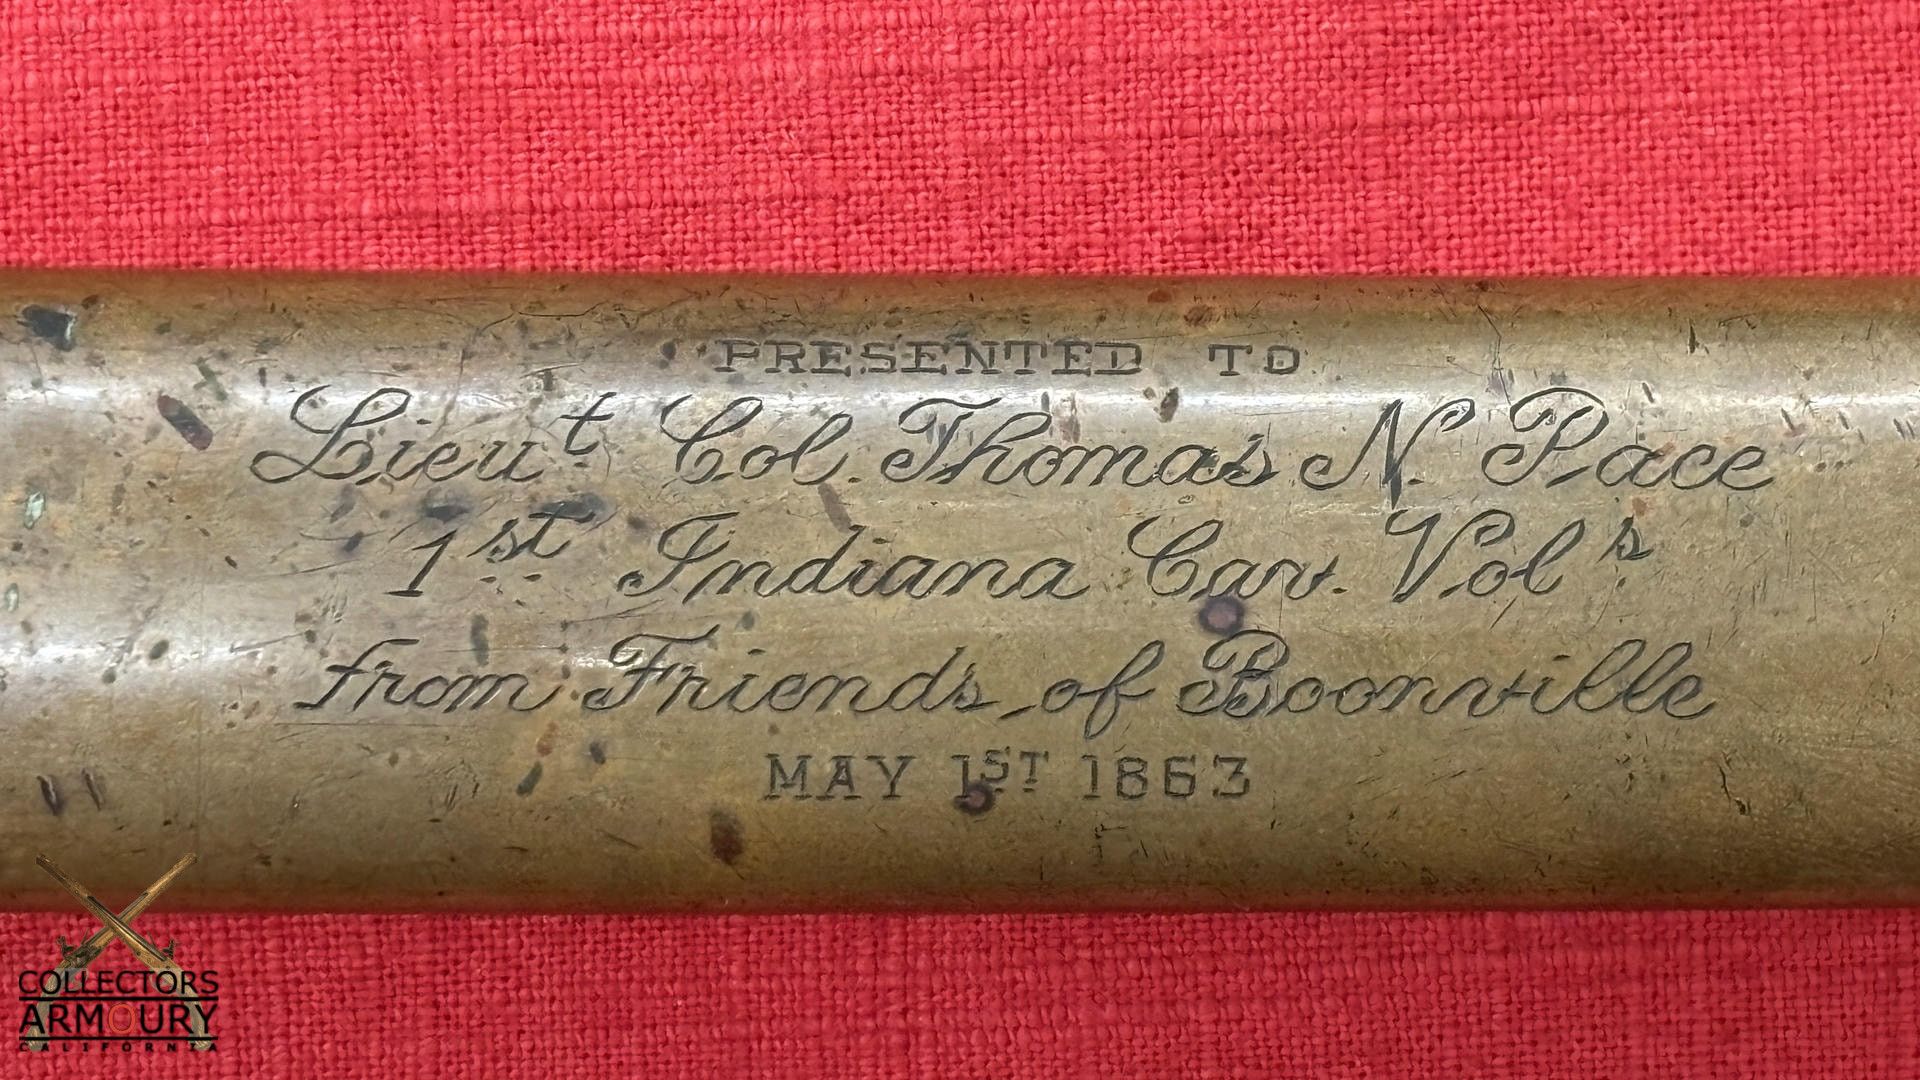 PRESENTED TO
Lieut Col. Thomas N. Pace
1st Indiana Cav. Vols
from Friends of Boonville
MAY 1ST 1863
COLLECTORS
ARMOURY
CALIFORNIA